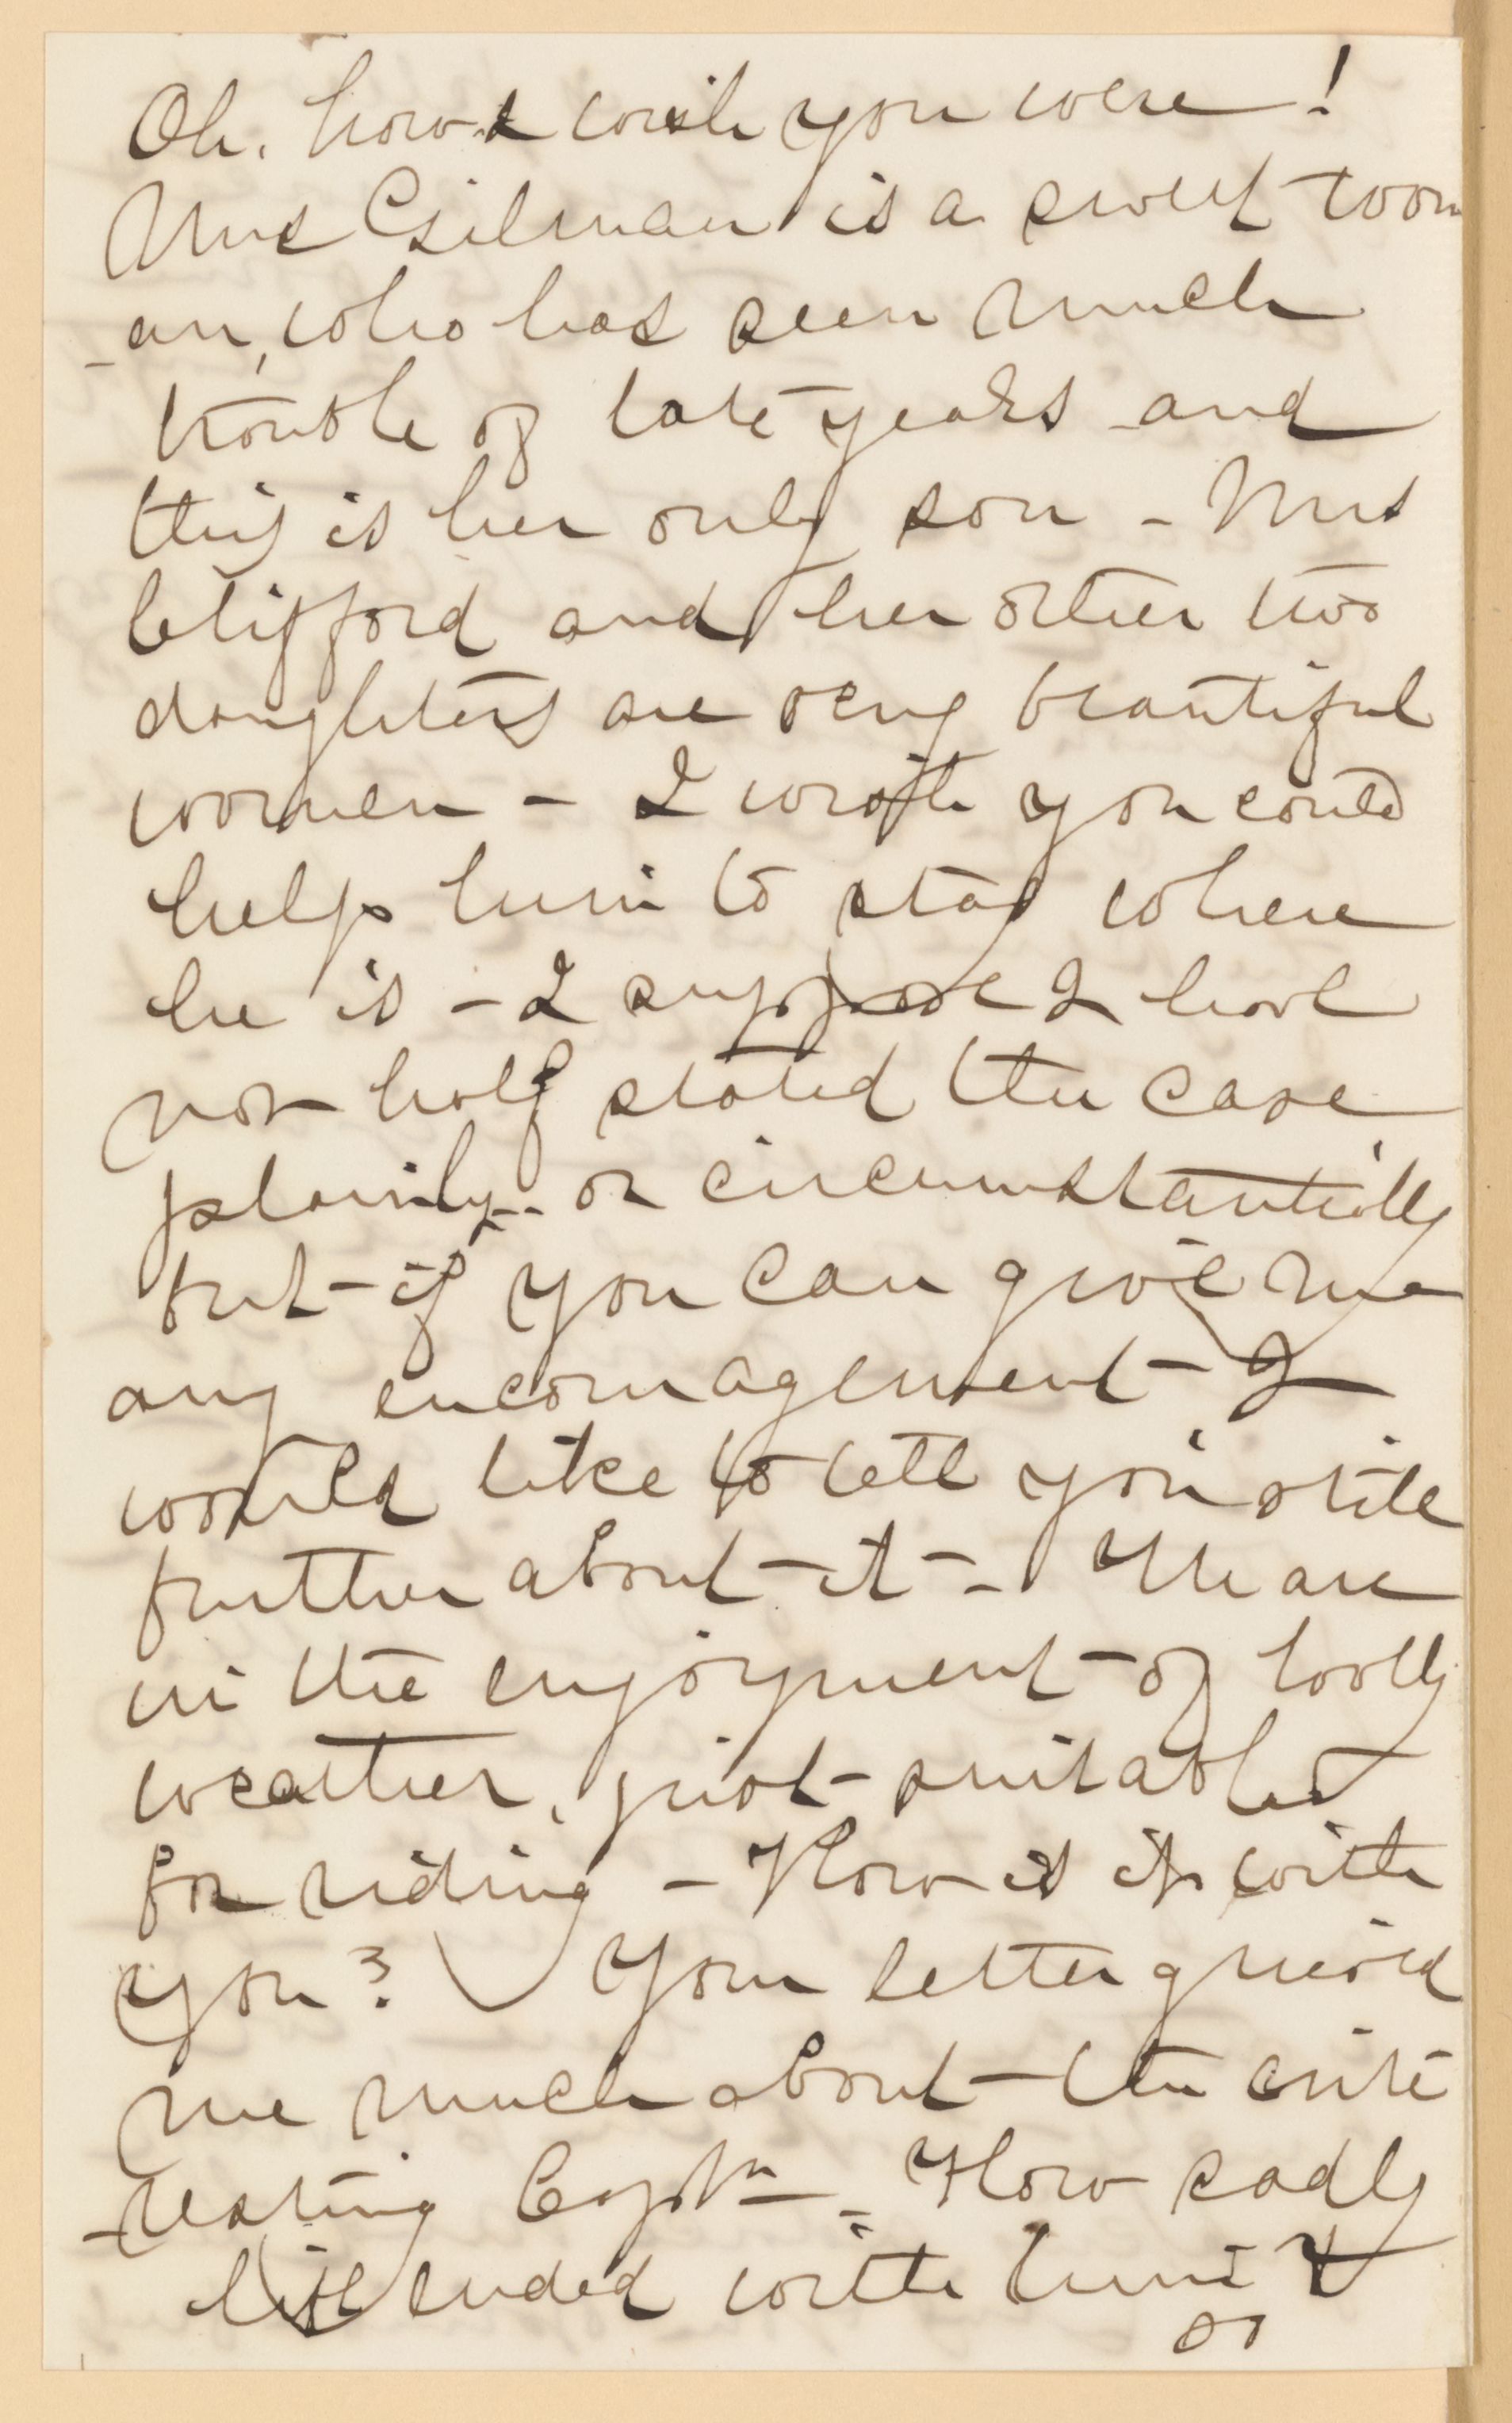 Oh, how I wish you were!
Mrs Gilman is a sweet wom
-an, who has seen much
trouble of late years and
this is her only son - Mrs
Clifford and her other two
daughters are very beautiful
women - I wish you could
help him to stay where
he is - I suppose I have
not half stated the case
plainly - or circumstantially
but - if you can give me
any encouragement - I
would like to tell you still
further about - it - We are
in the enjoyment - of lovely
weather, just - suitable
for riding - How is it with
you? Your letter grieved
me much about - the inte
-resting Captn - How sadly
life ended with him &